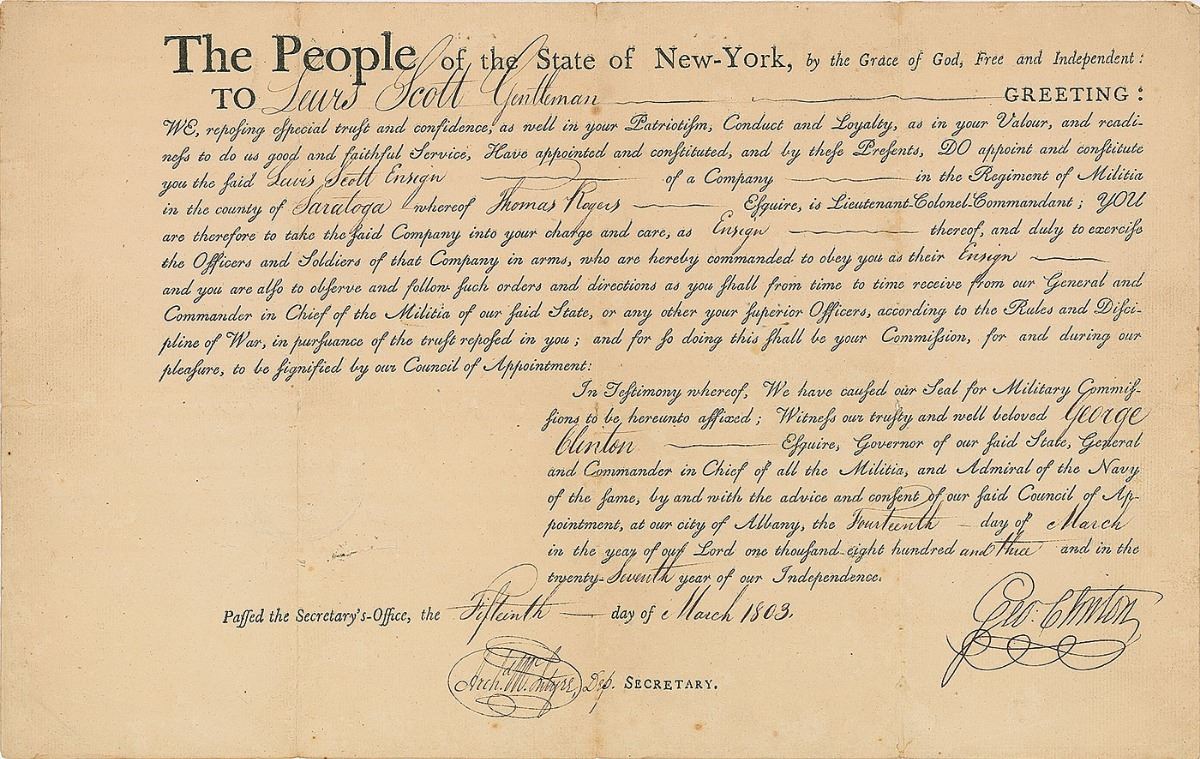 The People of the State of New-York, by the Grace of God, Free and Independent:
TO Lewis Scott Gentleman GREETING:
WE, reposing eſpecial truſt and confidence, as well in your Patriotiſm, Conduct and Loyalty, as in your Valour, and readi-
neſs to do us good and faithful Service, Have appointed and conſtituted, and by theſe Preſents, DO appoint and conſtitute
you the ſaid Lewis Scott Ensign of a Company in the Regiment of Militia
in the county of Saratoga whereof Thomas Rogers Eſquire, is Lieutenant-Colonel-Commandant; YOU
are therefore to take the ſaid Company into your charge and care, as Ensign thereof, and duly to exerciſe
the Officers and Soldiers of that Company in arms, who are hereby commanded to obey you as their Ensign
and you are alſo to obſerve and follow ſuch orders and directions as you ſhall from time to time receive from our General and
Commander in Chief of the Militia of our ſaid State, or any other your ſuperior Officers, according to the Rules and Diſci-
pline of War, in purſuance of the truſt repoſed in you; and for ſo doing this ſhall be your Commiſſion, for and during our
pleaſure, to be ſignified by our Council of Appointment:
In Teſtimony whereof, We have cauſed our Seal for Military Commiſ-
ſions to be hereunto affixed; Witneſs our truſty and well beloved George
Clinton Eſquire, Governor of our ſaid State, General
and Commander in Chief of all the Militia, and Admiral of the Navy
of the ſame, by and with the advice and conſent of our ſaid Council of Ap-
pointment, at our city of Albany, the Fourteenth day of March
in the year of our Lord one thouſand eight hundred and three and in the
twenty-Seventh year of our Independence.
Paſſed the Secretary's-Office, the Fifteenth day of March 1803.
Geo. Clinton
Arch. McIntyre, Dep. SECRETARY.